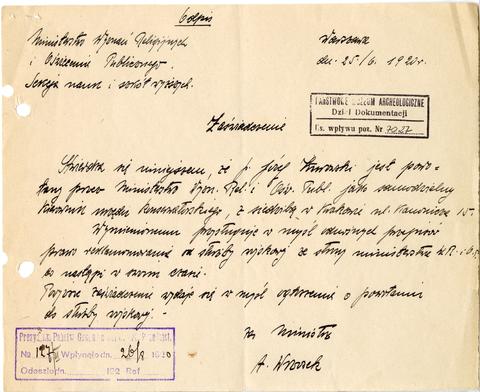 Odpis
Ministerstwo Wyznań Religijnych
i Oświecenia Publicznego.
Sekcja nauk i szkół wyższych.
Warszawa
dn. 25/6. 1920 r.
PAŃSTWOWE MUZEUM ARCHEOLOGICZNE
Dział Dokumentacji
Ks. wpływu poz. Nr 7027
Zaświadczenie
Stwierdza się niniejszem, że p. Józef Żurowski jest powo-
łany przez Ministerstwo Wyzn. Rel. i Ośw. Publ. jako samodzielny
Kierownik urzędu Konserwatorskiego, z siedzibą w Krakowie ul. 15.
Wymienionemu przysługuje w myśl odnośnych przepisów
prawo reklamowania od służby wojskowej ze strony ministerstwa W.R. i O.P.
co nastąpi w swoim czasie.
Powyższe zaświadczenie wydaje się w myśl ogłoszenia o powołaniu
do służby wojskowej.
za Ministra
Prezydjum Państw. Grona
№ 127/ Wpłynęło dn. 26/ 1920
Odeszło dn. 192 Ref